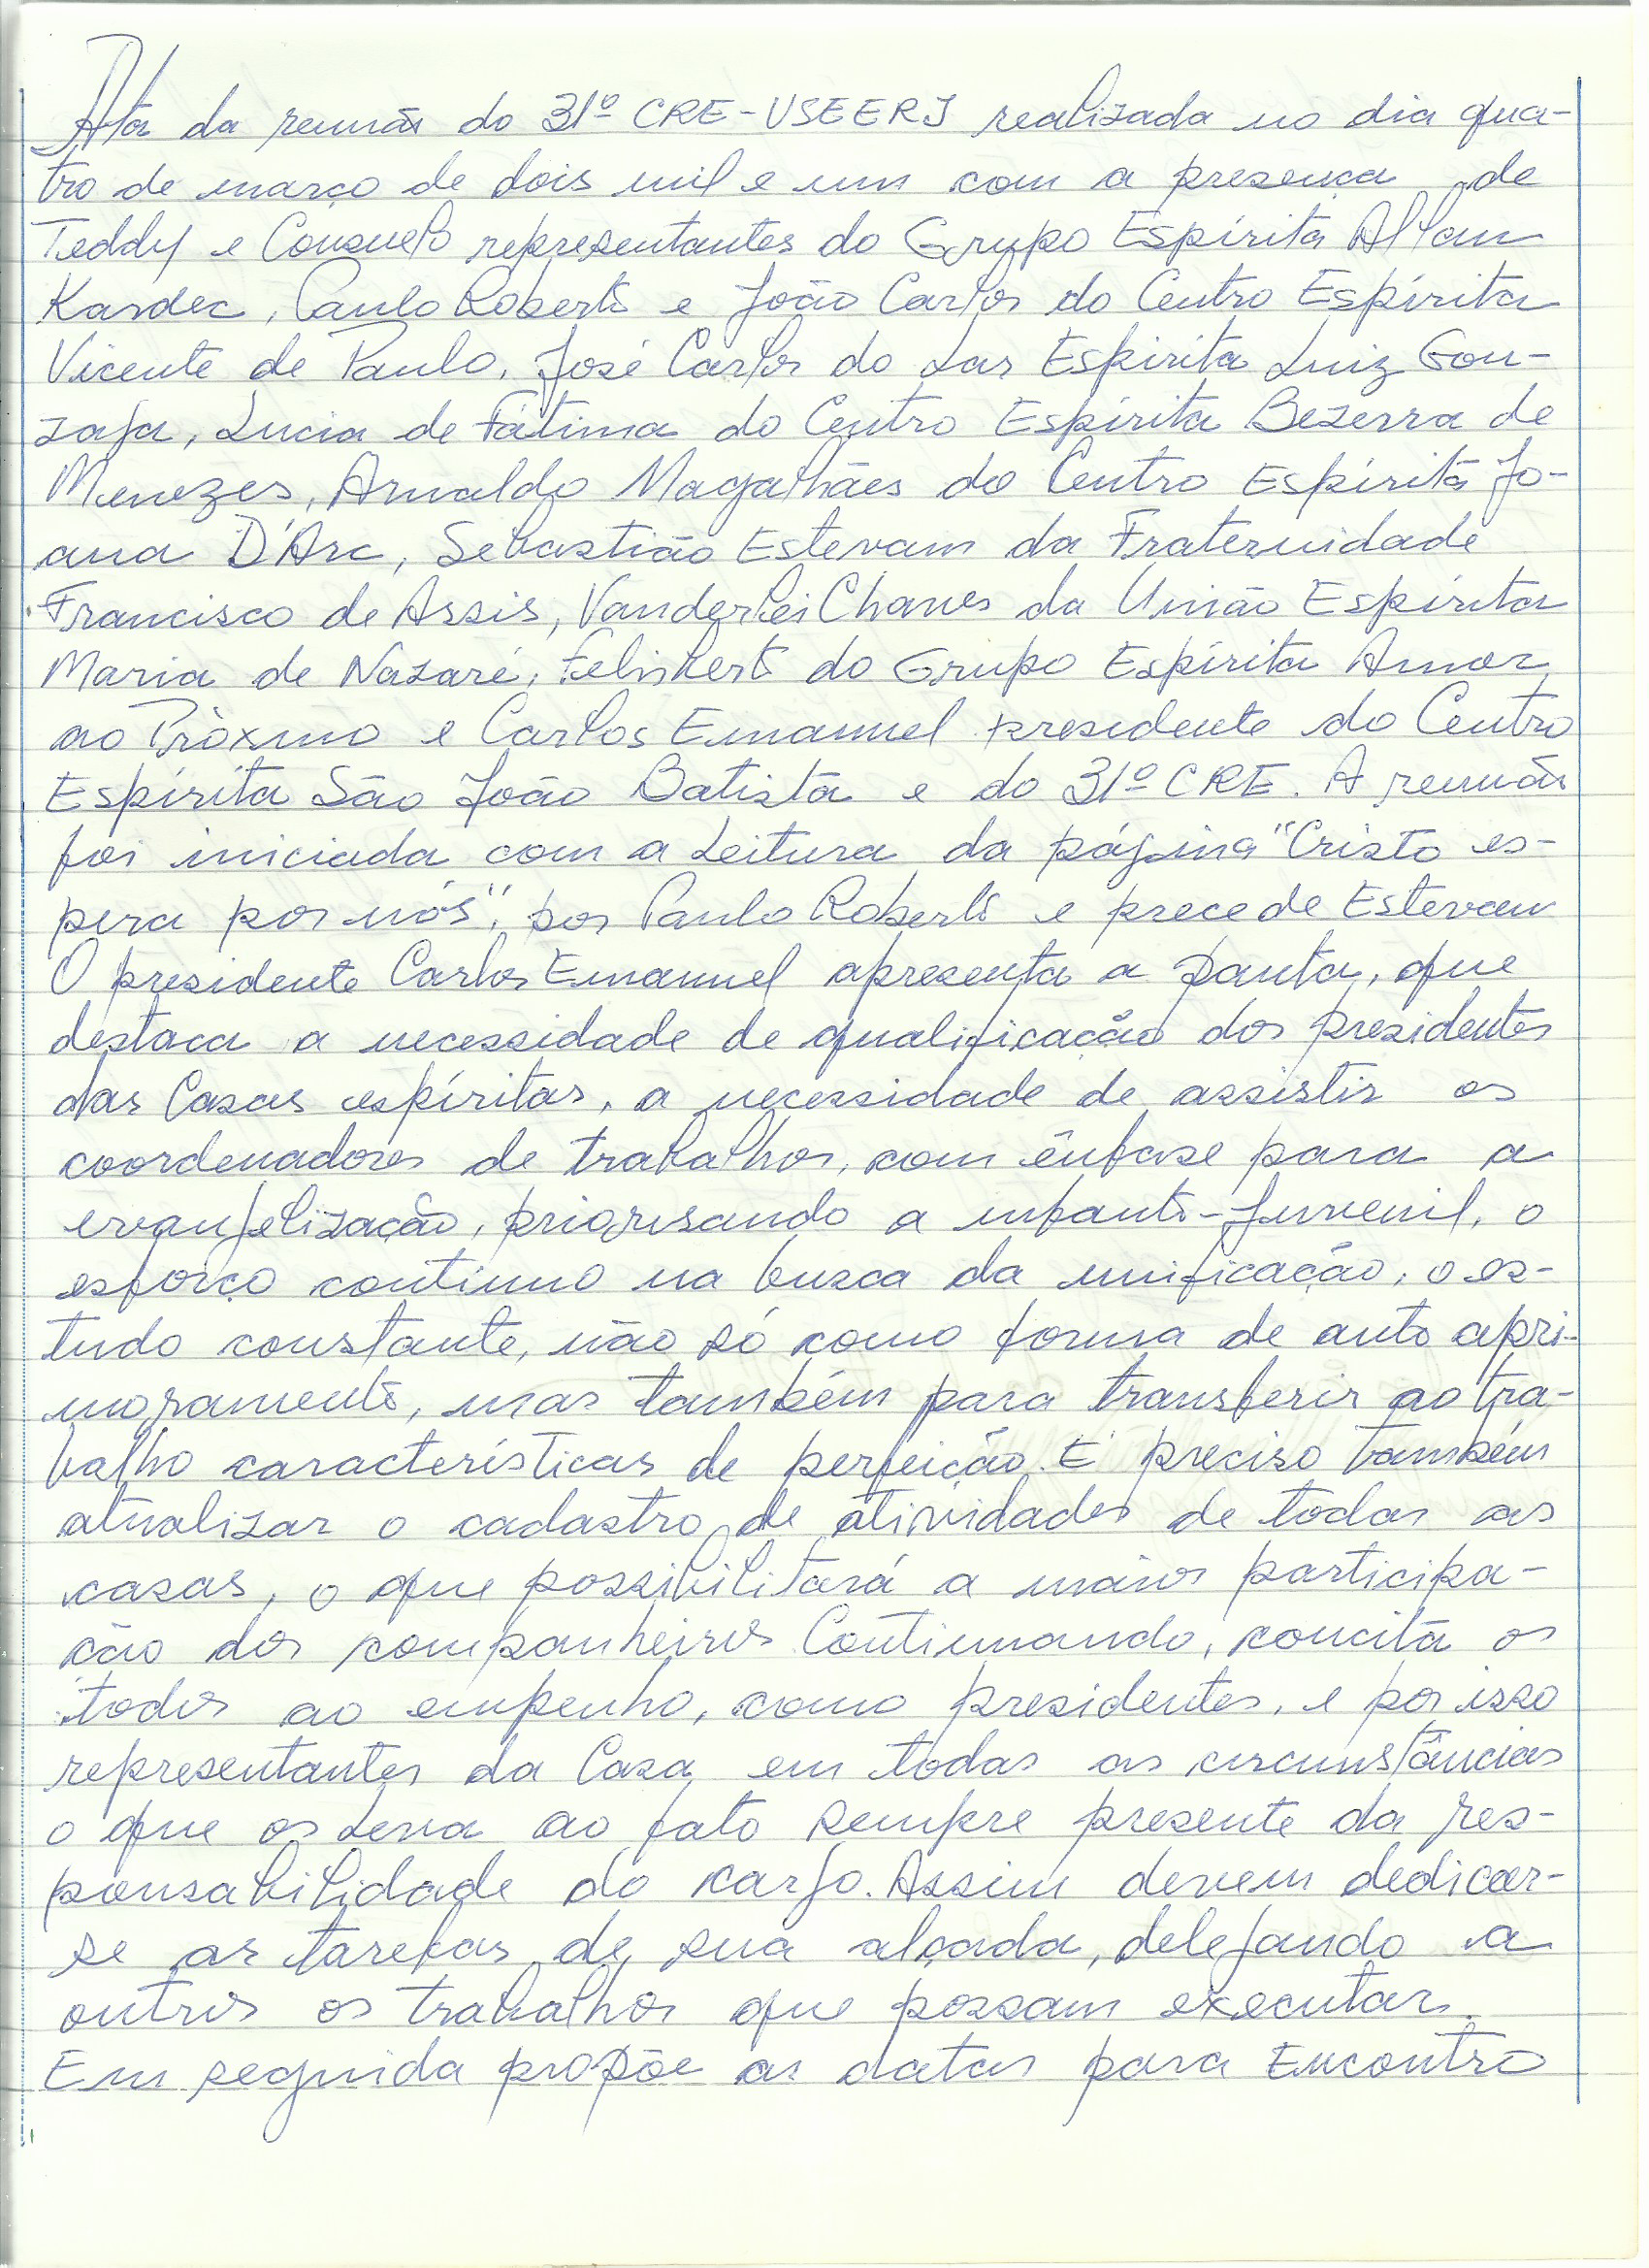 Ata da reunião do 31º CRE-USEERJ realizada no dia qua-
tro de março de dois mil e um com a presença de
Teddy e Consuelo representantes do Grupo Espírita Allan
Kardec, Paulo Roberto e João Carlos do Centro Espírita
Vicente de Paulo, José Carlos do Lar Espírita Luiz Gon-
zaga, Lucia de Fátima do Centro Espírita Bezerra de
Menezes, Arnaldo Magalhães do Centro Espírita Jo-
ana D'Arc, Sebastião Estevam da Fraternidade
Francisco de Assis, Vanderlei Chaves da União Espírita
Maria de Nazaré, Felisberto do Grupo Espírita Amor
ao Próximo e Carlos Emannel presidente do Centro
Espírita São João Batista e do 31º CRE. A reunião
foi iniciada com a leitura da página "Cristo es-
pera por nós", por Paulo Roberto e prece de Estevam
O presidente Carlos Emannel apresenta a pauta, que
destaca a necessidade de qualificação dos presidentes
das Casas espíritas, a necessidade de assistir os
coordenadores de trabalhos, com ênfase para a
evangelização, priorisando a infanto-juvenil, o
esforço continuo na busca da unificação, o es-
tudo constante, não só como forma de auto apri-
moramento, mas também para transferir ao tra-
balho características de perfeição. É preciso também
atualizar o cadastro de atividades de todas as
casas, o que possibilitará a maior participa-
ção dos companheiros. Continuando, concita os
todos ao empenho, como presidentes, e por isso
representantes da Casa em todas as circunstâncias
o que os leva ao fato sempre presente da res-
ponsabilidade do cargo. Assim devem dedicar-
se as tarefas de sua alçada, delegando a
outros os trabalhos que possam executar.
Em seguida propõe as datas para Encontro